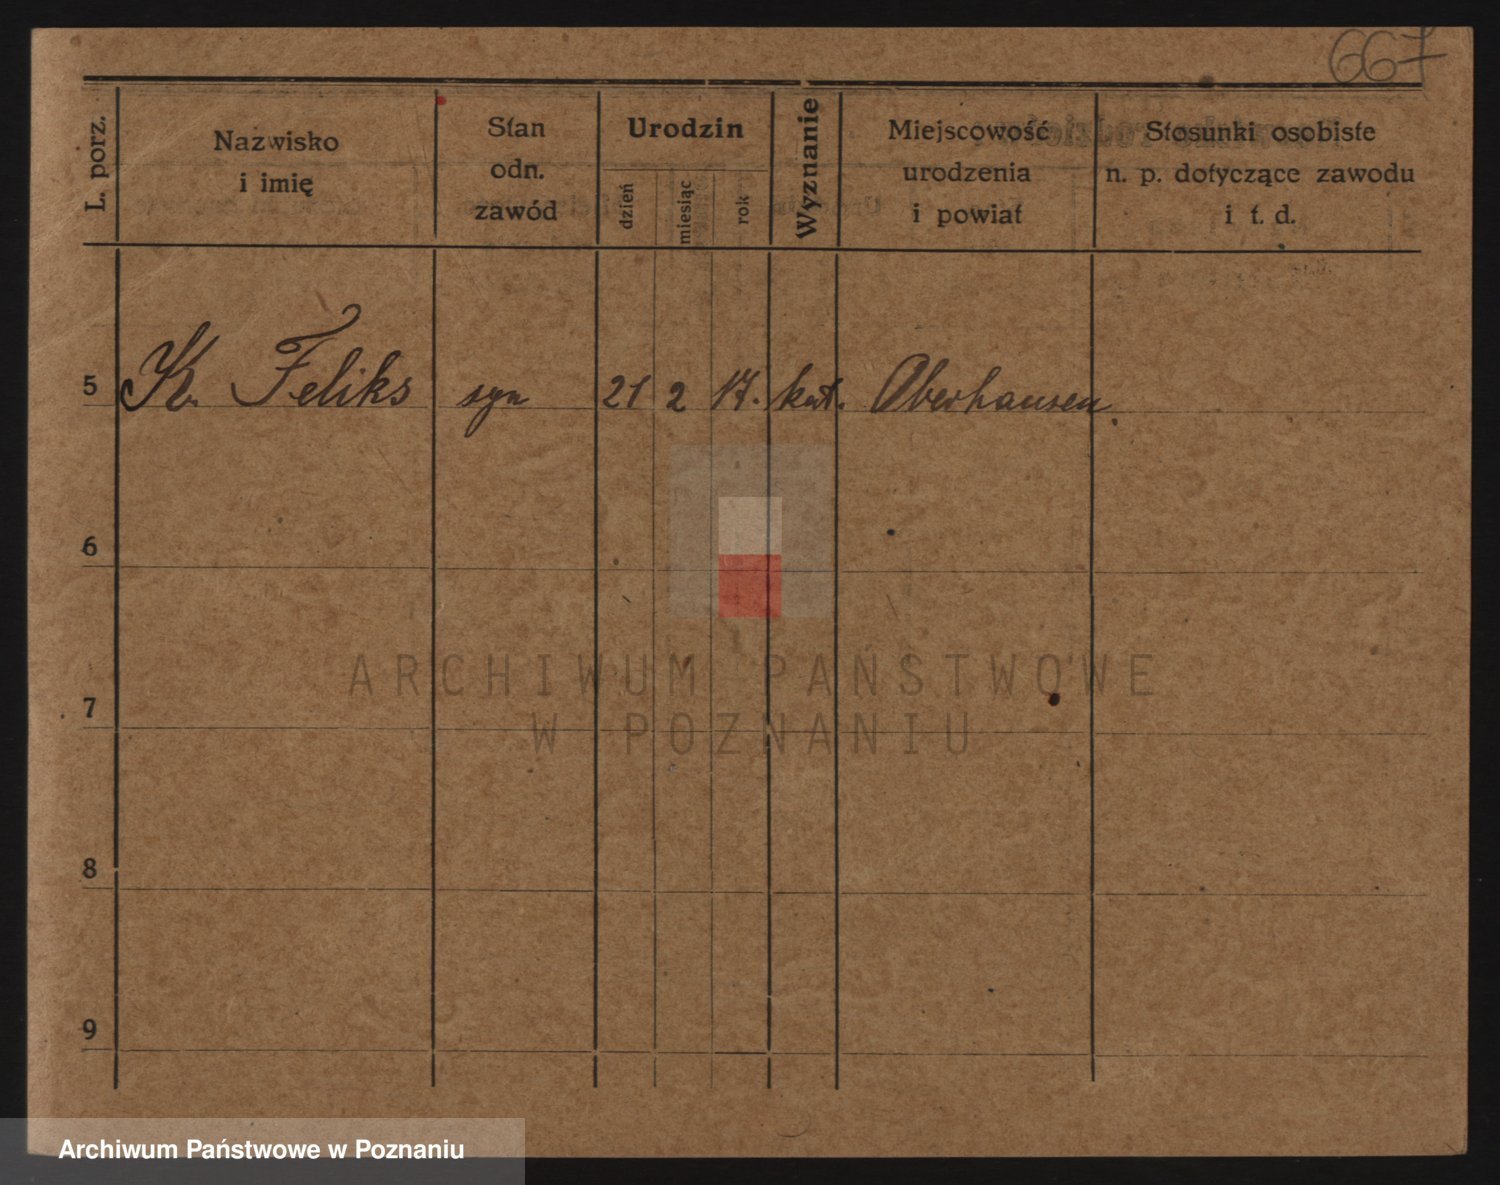 667
L. porz.
Nazwisko
i imię
Stan
odn.
zawód
Urodzin
dzień
miesiąc
rok
Wyznanie
Miejscowość
urodzenia
i powiat
Stosunki osobiste
n. p. dotyczące zawodu
i t. d.
5 K. Feliks syn 21 2 17. kat. Oberhausen
6
7
8
9
ARCHIWUM PAŃSTWOWE
W POZNANIU
Archiwum Państwowe w Poznaniu